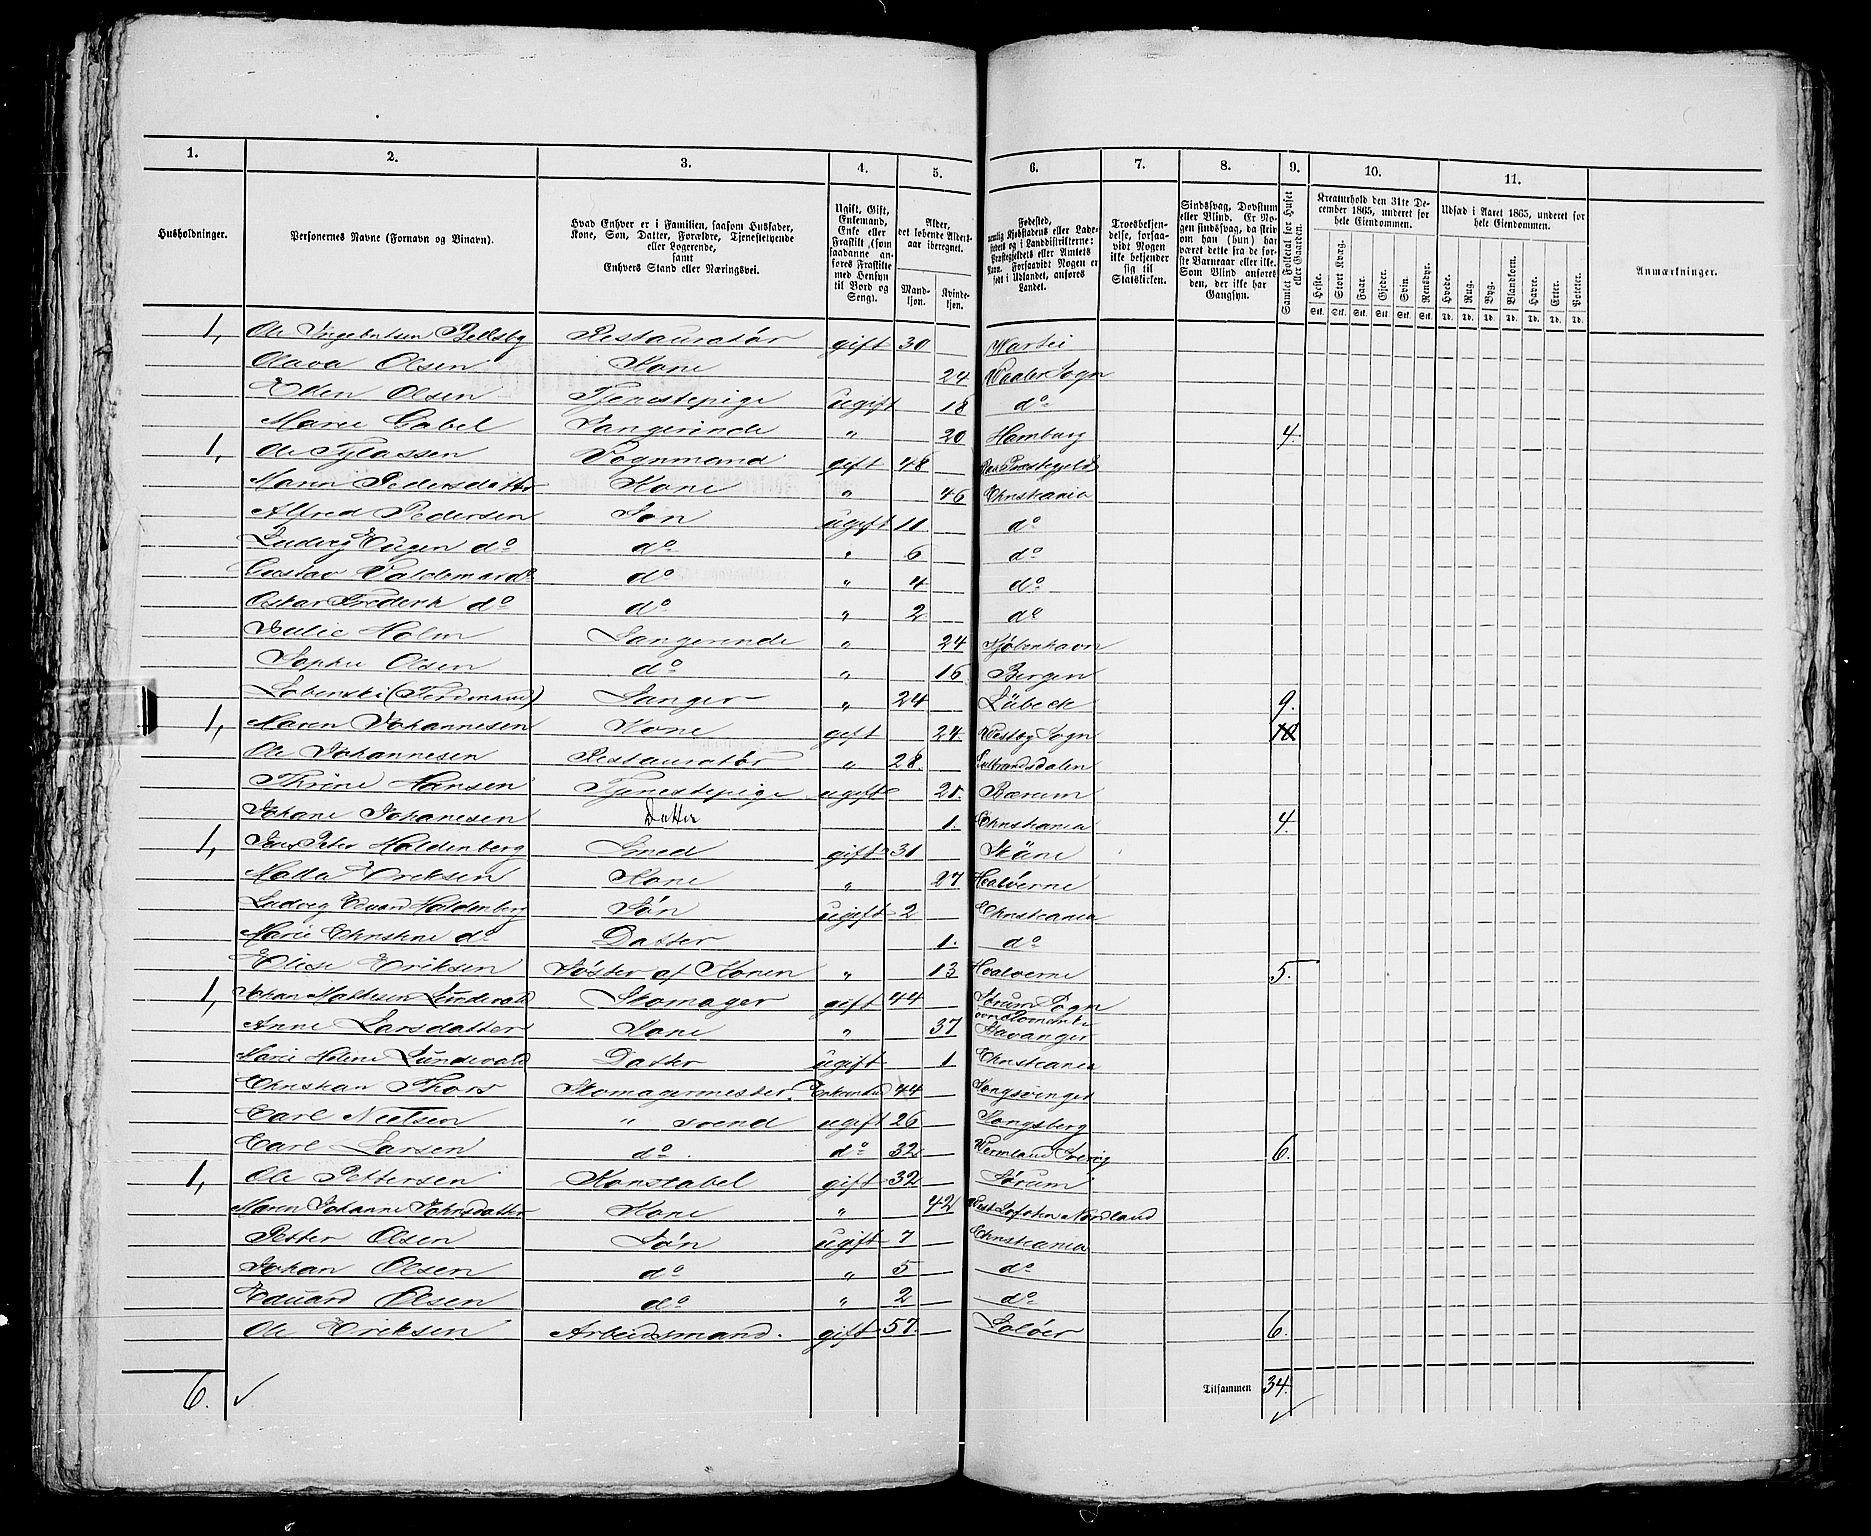 1. 2. 3. 4. 5. 6. 7. 8. 9. 10. 11.
Husholdninger.
Personernes Navne (Fornavn og Binavn).
Hvad Enhver er i Familien, saasom Husfader,
Kone, Søn, Datter, Forældre, Tjenestetyende
eller Logerende,
samt
Enhvers Stand eller Næringsvei.
Ugift, Gift,
Enkemand,
Enke eller
Fraskilt, (som
saadanne an-
føres Fraskilte
med Hensyn
til Bord og
Seng).
Alder,
det løbende Alders-
aar iberegnet.
Mand-
kjøn.
Kvinde-
kjøn.
Fødested,
nemlig Kjøbstadens eller Lade-
stedets og i Landdistrikterne:
Præstegjeldets eller Amtets
Navn. Forsaavidt Nogen er
født i Udlandet, anføres
Landet.
Troesbekjen-
delse, forsaa-
vidt Nogen
ikke bekjender
sig til
Statskirken.
Sindssvag, Døvstum
eller Blind. Er No-
gen sindssvag, da skriv
om han (hun) har
været dette fra de før-
ste Barneaar eller ikke.
Som Blind anføres
den, der ikke har
Gangsyn.
Samlet Folketal for Huset
eller Gaarden.
Kreaturhold den 31te De-
cember 1865, underet for
hele Eiendommen.
Heste. Stort Kvæg. Faar. Gjeder. Svin. Rensdyr.
Stk. Stk. Stk. Stk. Stk. Stk.
Udsæd i Aaret 1865, underet for
hele Eiendommen.
Hvede. Rug. Byg. Blandkorn. Havre. Erter. Poteter.
Td. Td. Td. Td. Td. Td. Td.
Anmærkninger.
1, Ole Ingebertsen Restauratør gift 30
Olava Olsen Kone 24 Waaler Sogn
Ellen Olsen Tjenestepige ugift 18 do
Marie Gabel Sangerinde " 20 Hamburg 4.
1, Ole Vognmand gift 48 Præstegjeld
Maren Pedersdatter Kone " 46 Christiania
Alfred Pedersen Søn ugift 11 do
Ludvig Eugen do do " 6 do
Gustav Valdemar do do " 4 do
Oskar Frederik do do " 2 do
Julie Holm Sangerinde " 24 Kjøbenhavn
Sophie Olsen do " 16 Bergen
Lobenski (Ferdinand) Sanger " 24 Lübeck 9.
1, Maren Johannesen Kone gift 24. Westby Sogn 10
Ole Johannesen Restauratør " 28. Gulbrandsdalen
Thrine Hansen Tjenestepige ugift 21. Bærum
Johane Johanesen Datter 1. Christiania 4.
1, Jens Peter Haldenberg Smed gift 31 Skåne
Malla Eriksen Kone " 27 Hvaløerne
Ludvig Eduard Haldenberg Søn ugift 2 Christiania
Marie Christine do Datter 1. do
Elise Eriksen Søster af Konen " 13 Hvaløerne 5.
1, Johan Mathesen Lundevald Skomager gift 44 Sørum Sogn
Anne Larsdatter Kone " 37 Stavanger
Marie Helene Lundevald Datter ugift 1 Christiania
Christian Thors Skomagermester. Enkemand 44 Kongsvinger
Carl Nielsen " svend ugift 26 Kongsberg
Carl Larsen do. do 32 Wermland Sverig 6.
1, Ole Pettersen Konstabel gift 32 Sørum
Maren Johanne Johnsdatter Kone " 42 West Lofoten Nordland
Petter Olsen Søn ugift 7 Christiania
Johan Olsen do " 5 do
Eduard Olsen do " 2 do
Ole Eriksen Arbeidsmand. gift 57. Soløer 6.
6. Tilsammen 34.